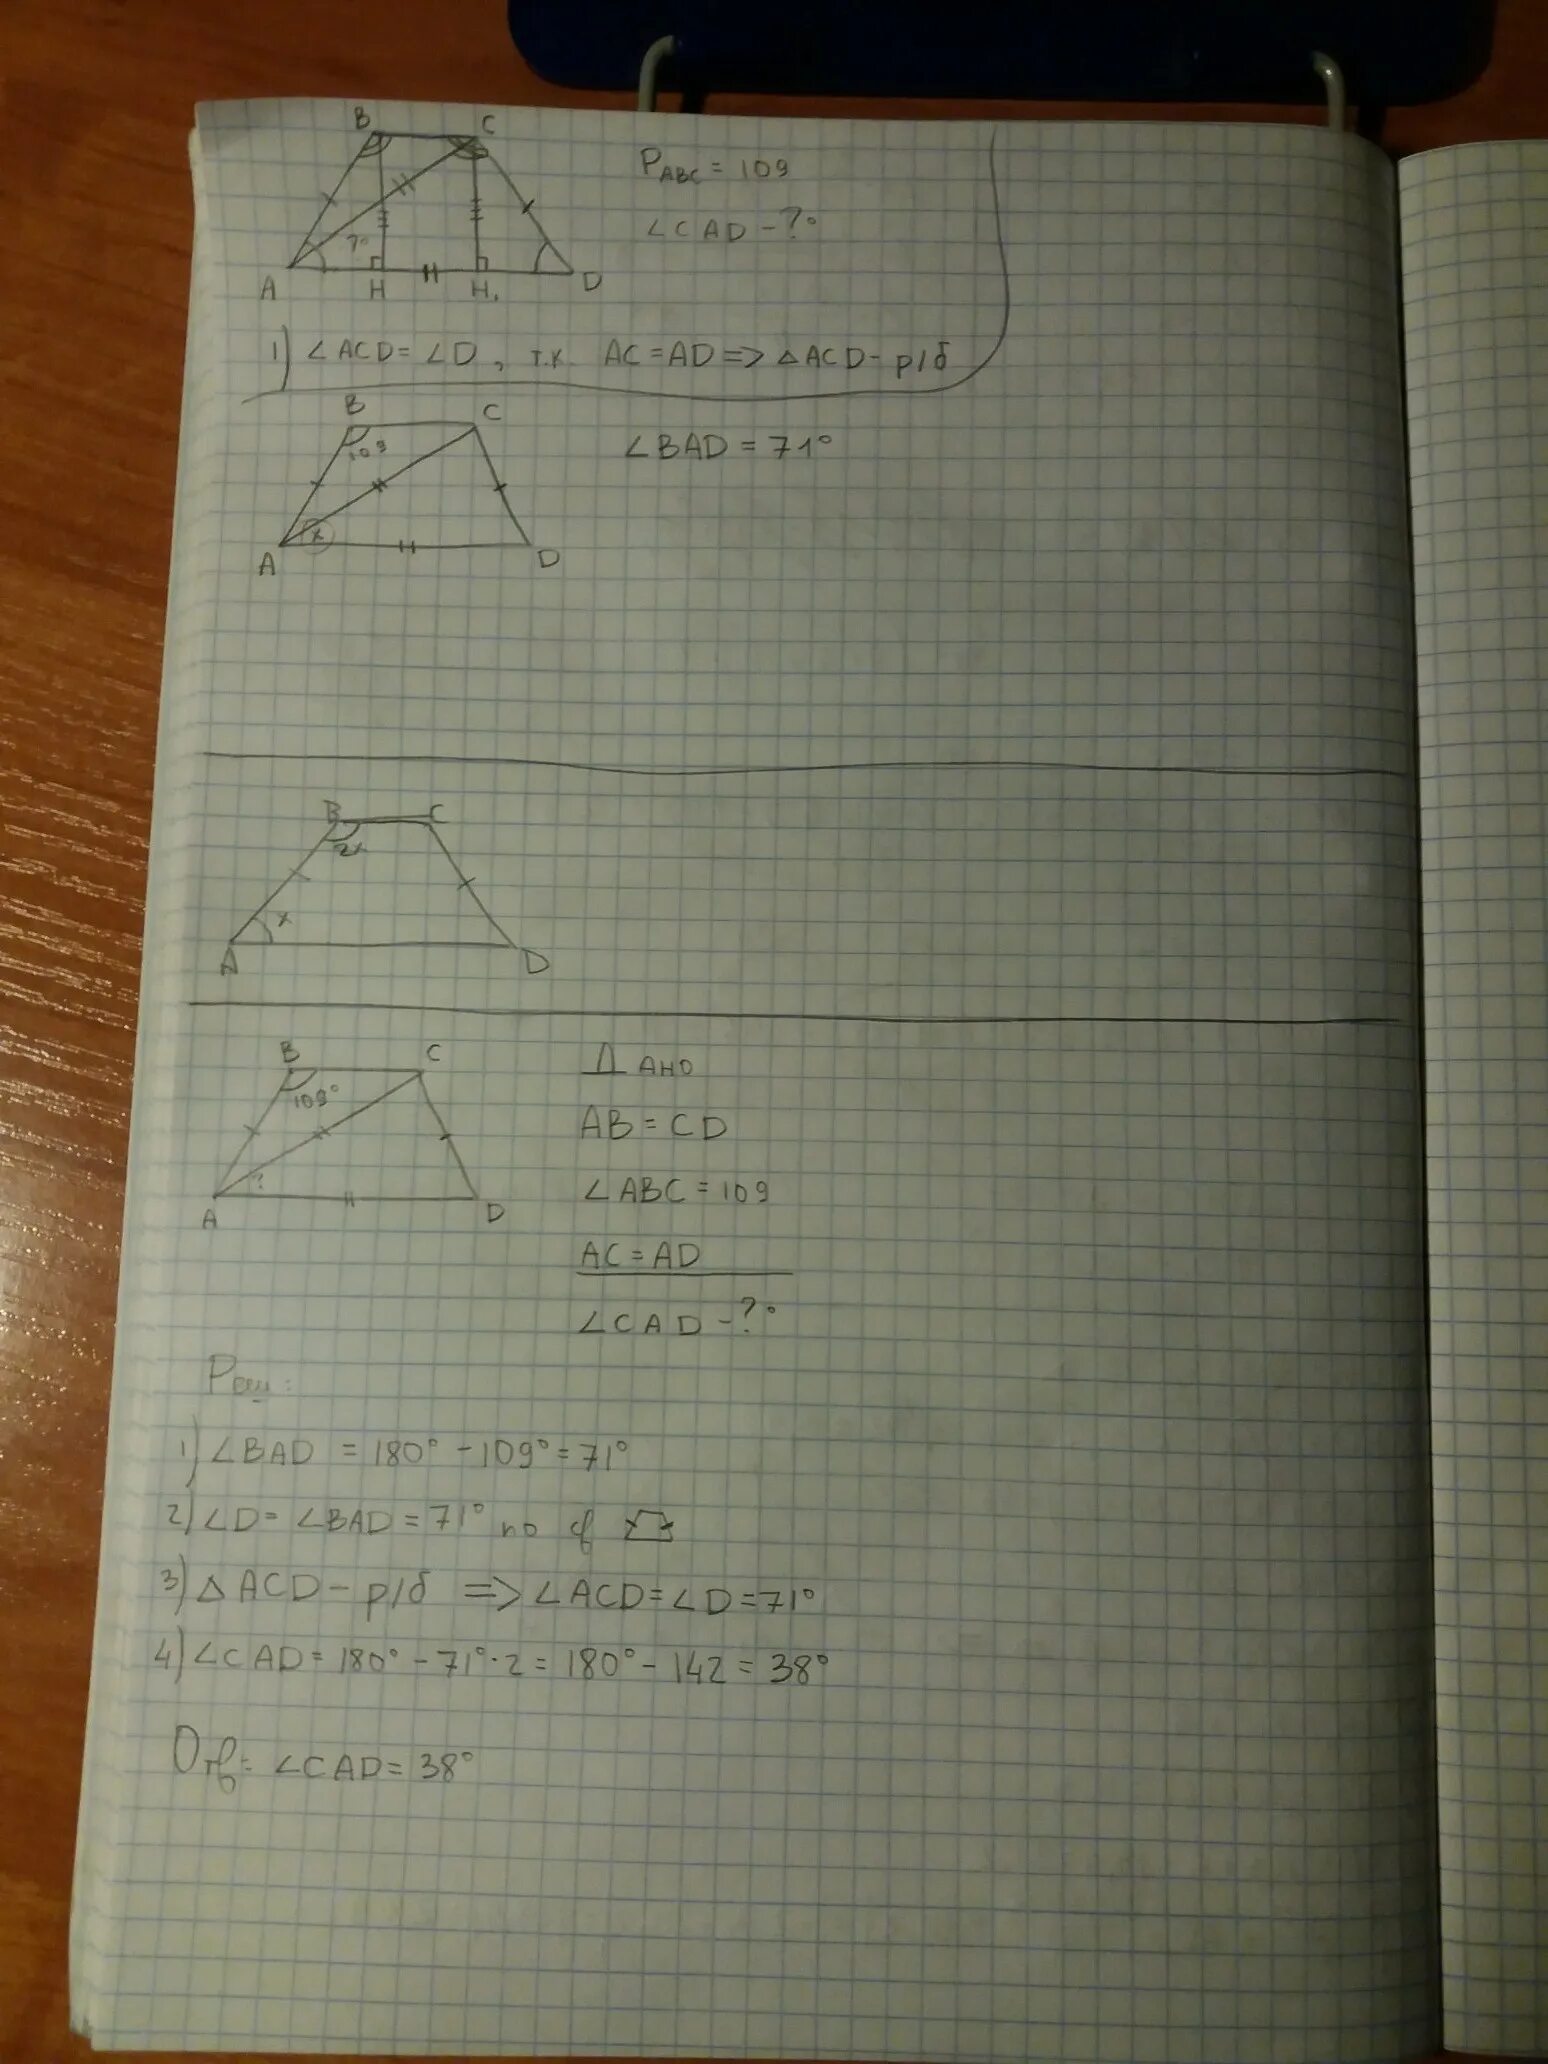 B C
P ABC = 109
∠CAD - ?°
?°
A H H₁ D
1) ∠ACD = ∠D, т.к. AC = AD => △ACD - р/б
B C
109
∠BAD = 71°
x
A D
B C
2x
x
A D
B C
109°
?
A D
Дано
AB = CD
∠ABC = 109
AC = AD
∠CAD - ?°
Реш:
1) ∠BAD = 180° - 109° = 71°
2) ∠D = ∠BAD = 71° по св
3) △ACD - р/б => ∠ACD = ∠D = 71°
4) ∠CAD = 180° - 71° · 2 = 180° - 142 = 38°
Отв: ∠CAD = 38°